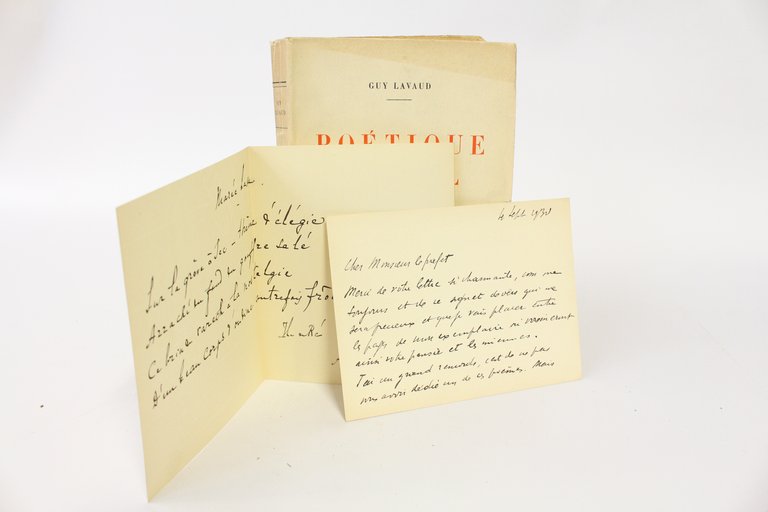 GUY LAVAUD
POÉTIQUE
L
Marée
Sur la grève à sec – d'élégie
Arraché au fond du gouffre salé
Ce brin a la nostalgie
D'un beau corps autrefois
4 Sept 1938
Cher Monsieur le préfet
Merci de votre lettre si charmante, comme
toujours et de ce signet de vers qui me
sera precieux et que je vais placer entre
les pages de mon exemplaire où voisineront
ainsi votre pensée et les miennes.
J'ai un grand remords, c'est de ne pas
vous avoir dédié un de ces poèmes. Mais